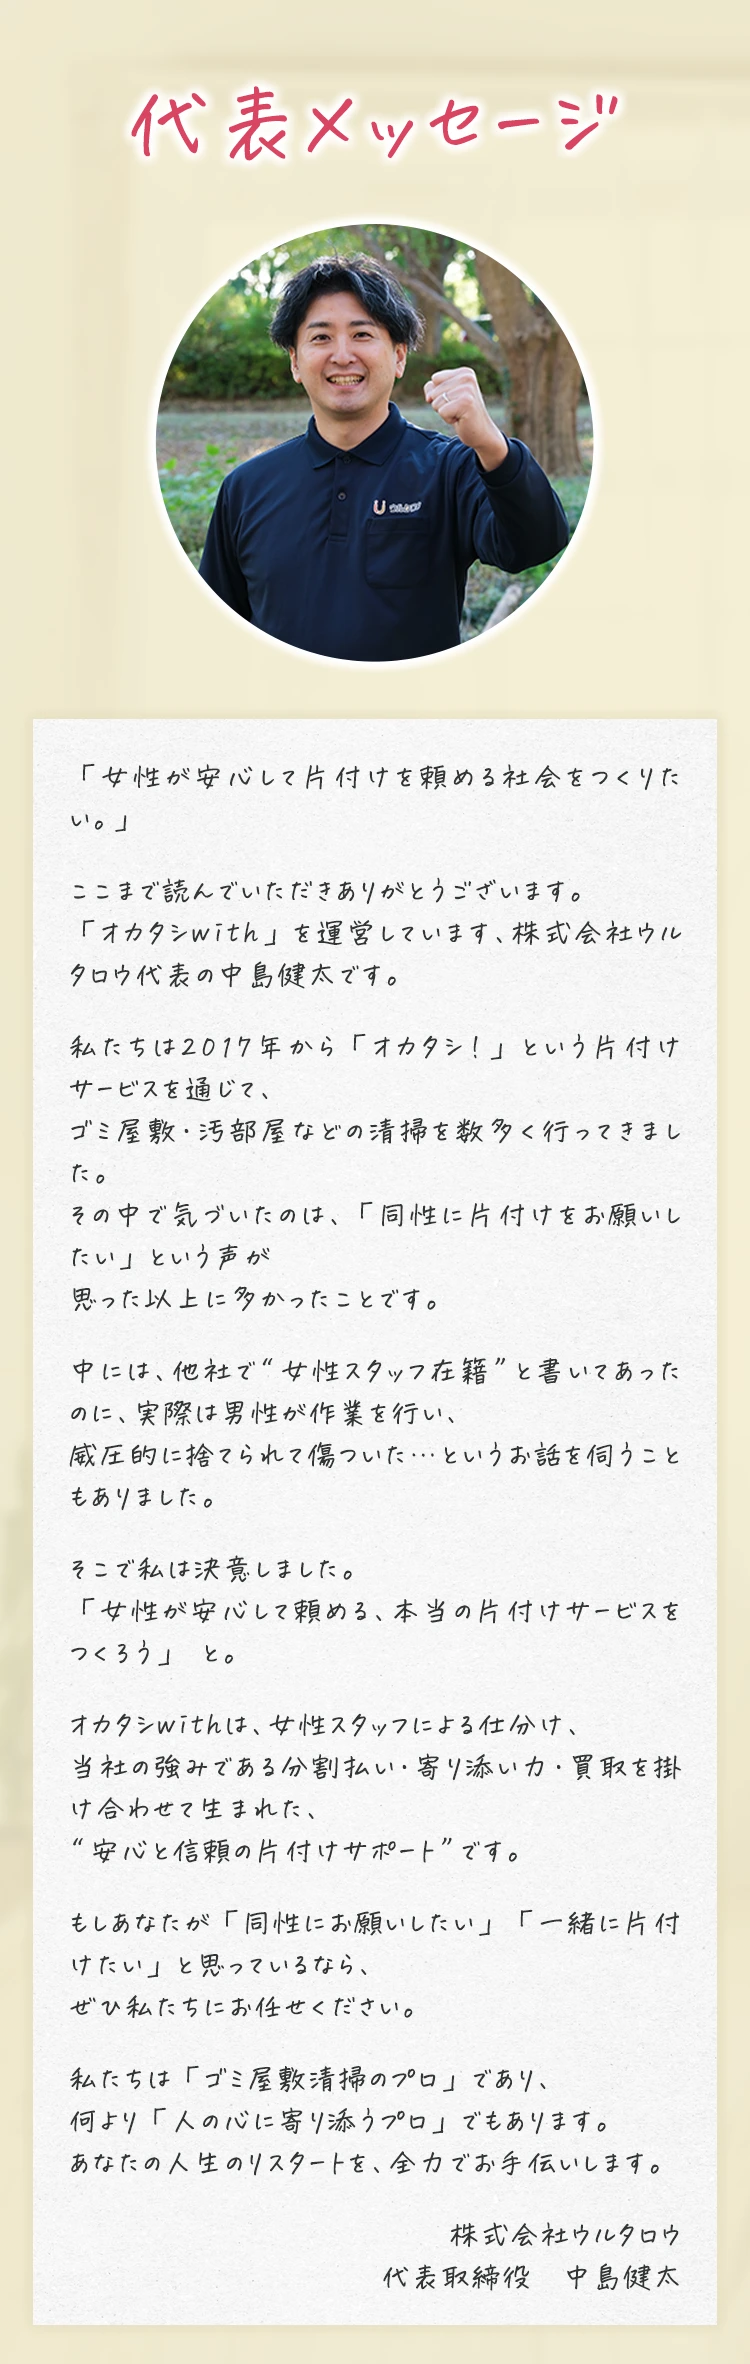 代表メッセージ
U ウルタロウ
「女性が安心して片付けを頼める社会をつくりた
い。」
ここまで読んでいただきありがとうございます。
「オカタシwith」を運営しています、株式会社ウル
タロウ代表の中島健太です。
私たちは2017年から「オカタシ！」という片付け
サービスを通じて、
ゴミ屋敷・汚部屋などの清掃を数多く行ってきまし
た。
その中で気づいたのは、「同性に片付けをお願いし
たい」という声が
思った以上に多かったことです。
中には、他社で“女性スタッフ在籍”と書いてあった
のに、実際は男性が作業を行い、
威圧的に捨てられて傷ついた…というお話を伺うこと
もありました。
そこで私は決意しました。
「女性が安心して頼める、本当の片付けサービスを
つくろう」 と。
オカタシwithは、女性スタッフによる仕分け、
当社の強みである分割払い・寄り添い力・買取を掛
け合わせて生まれた、
“安心と信頼の片付けサポート”です。
もしあなたが「同性にお願いしたい」「一緒に片付
けたい」と思っているなら、
ぜひ私たちにお任せください。
私たちは「ゴミ屋敷清掃のプロ」であり、
何より「人の心に寄り添うプロ」でもあります。
あなたの人生のリスタートを、全力でお手伝いします。
株式会社ウルタロウ
代表取締役　中島健太